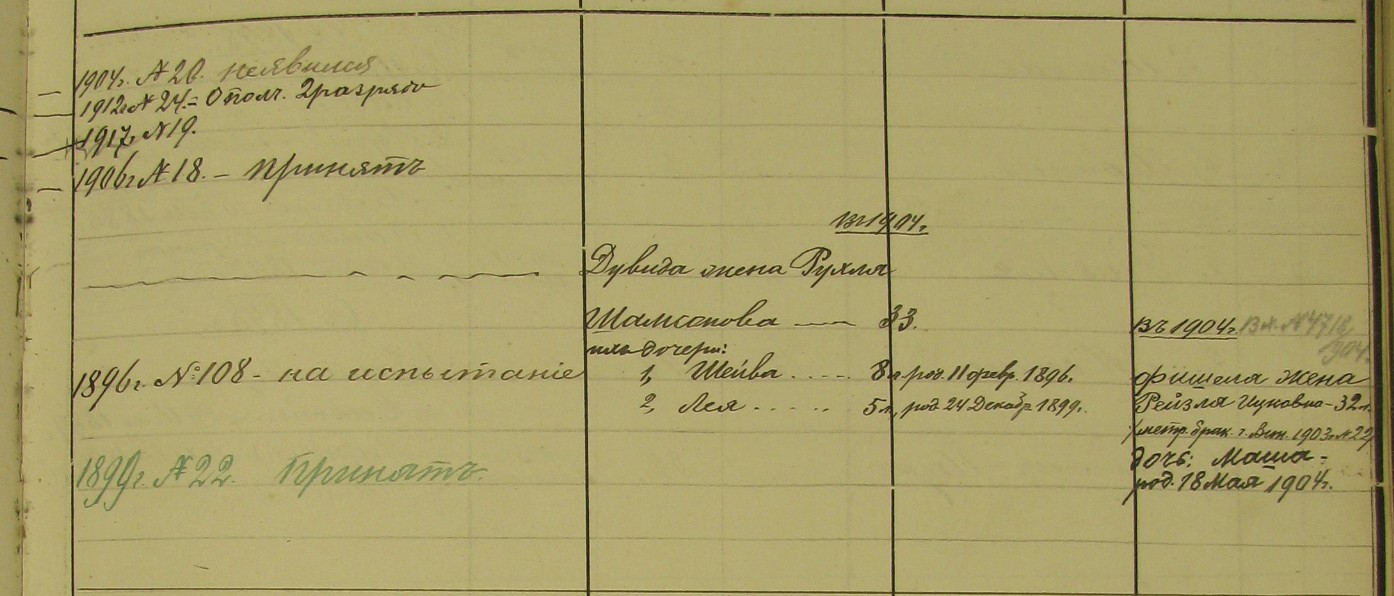 1904г. №20. неявился
1912г №24. – Ополч. 2 разряда
1917г №19.
1906г №18. – Принятъ
въ 1904г.
Дувида жена Рухля
Шамсонова — 33.
ихъ дочери:
1896г. №108 – на испытаніе
1, Шейва . . . . 8 л. род. 11 февр. 1896.
2, Лея . . . . . 5 л, род. 24 Декабр 1899г.
1899г. №22. Принятъ.
въ 1904г.
904
Фишеля жена
Рейзля Ицковна – 32 л.
/метр. брак. г. 1903г №22/
дочь: Маша –
род. 18 Мая 1904г.